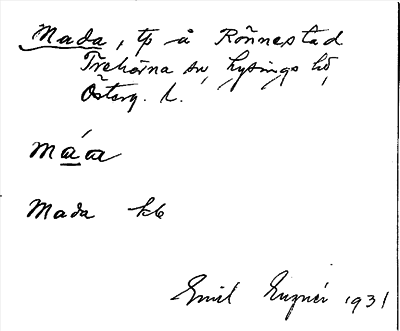 Mada, tp å Rönnestad
Trehörna sn, Lysings hd,
Österg. l.
máa
Mada kb
Emil 1931